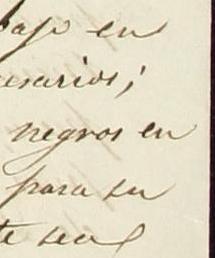 bajo en
esarios;
negros en
para su
te sea